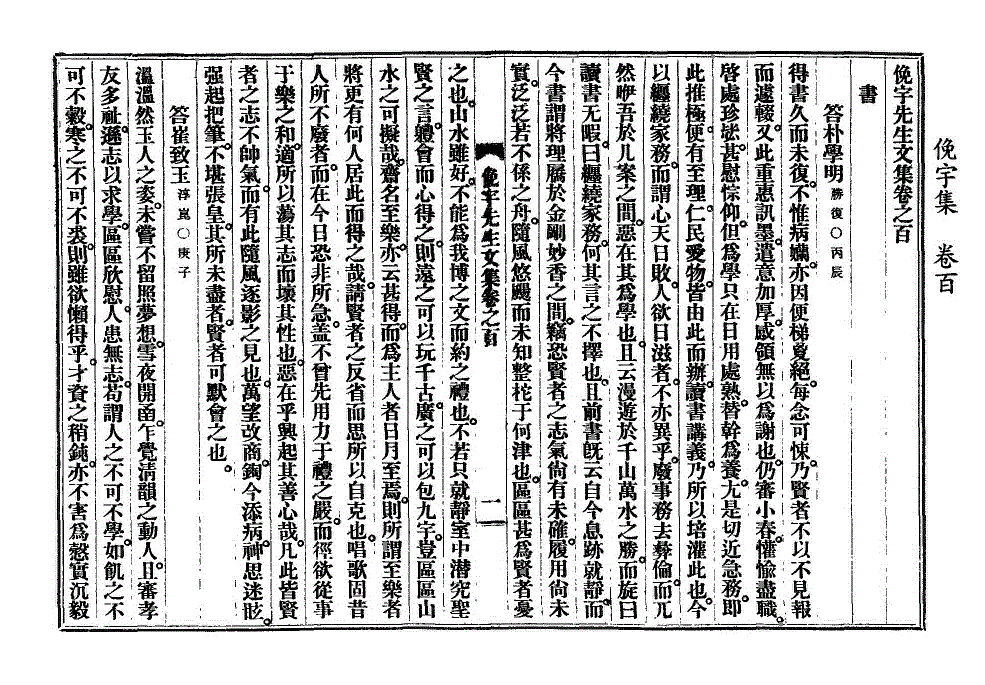 俛宇集 卷百
俛宇先生文集卷之百
書
答朴學明勝復○丙辰
得書久而未復。不惟病嬾。亦因便梯夐絕。每念可悚。乃賢者不以不見報
而遽輟。又此重惠訊墨。遣意加厚。感領無以爲謝也。仍審小春懽愉盡職。
啓處珍毖。甚慰悰仰。但爲學只在日用處熟。替幹爲養。尤是切近急務。卽
此推極。便有至理。仁民愛物。皆由此而辦。讀書講義。乃所以培灌此也。今
以纏繞家務。而謂心天日敗。人欲日滋者。不亦異乎。廢事務去彝倫。而兀
然咿吾於几案之間。惡在其爲學也。且云漫遊於千山萬水之勝。而旋曰
讀書无暇。曰纏繞家務。何其言之不擇也。且前書旣云自今息跡就靜。而
今書謂將理屩於金剛妙香之間。竊恐賢者之志氣尙有未確。履用尙未
實。泛泛若不係之舟。隨風悠颺而未知整柁于何津也。區區甚爲賢者憂
俛宇先生文集卷之百
一
之也。山水雖好。不能爲我博之文而約之禮也。不若只就靜室中潛究聖
賢之言。軆會而心得之。則遠之可以玩千古。廣之可以包九宇。豈區區山
水之可擬哉。齋名至樂。亦云甚得。而爲主人者日月至焉。則所謂至樂者
將更有何人居此而得之哉。請賢者之反省而思所以自克也。唱歌固昔
人所不廢者。而在今日恐非所急。盖不曾先用力于禮之嚴。而徑欲從事
于樂之和。適所以蕩其志而壞其性也。惡在乎興起其善心哉。凡此皆賢
者之志不帥氣。而有此隨風逐影之見也。萬望改商。鋾今添病。神思迷眩。
强起把筆。不堪張皇。其所未盡者。賢者可默會之也。
答崔致玉淳嵬○庚子
溫溫然玉人之姿。未嘗不留照夢想。雪夜開函。乍覺淸韻之動人。且審孝
友多祉。遜志以求學。區區欣慰。人患無志。苟謂人之不可不學。如飢之不
可不穀。寒之不可不裘。則雖欲懶得乎。才資之稍鈍。亦不害爲慤實沉毅